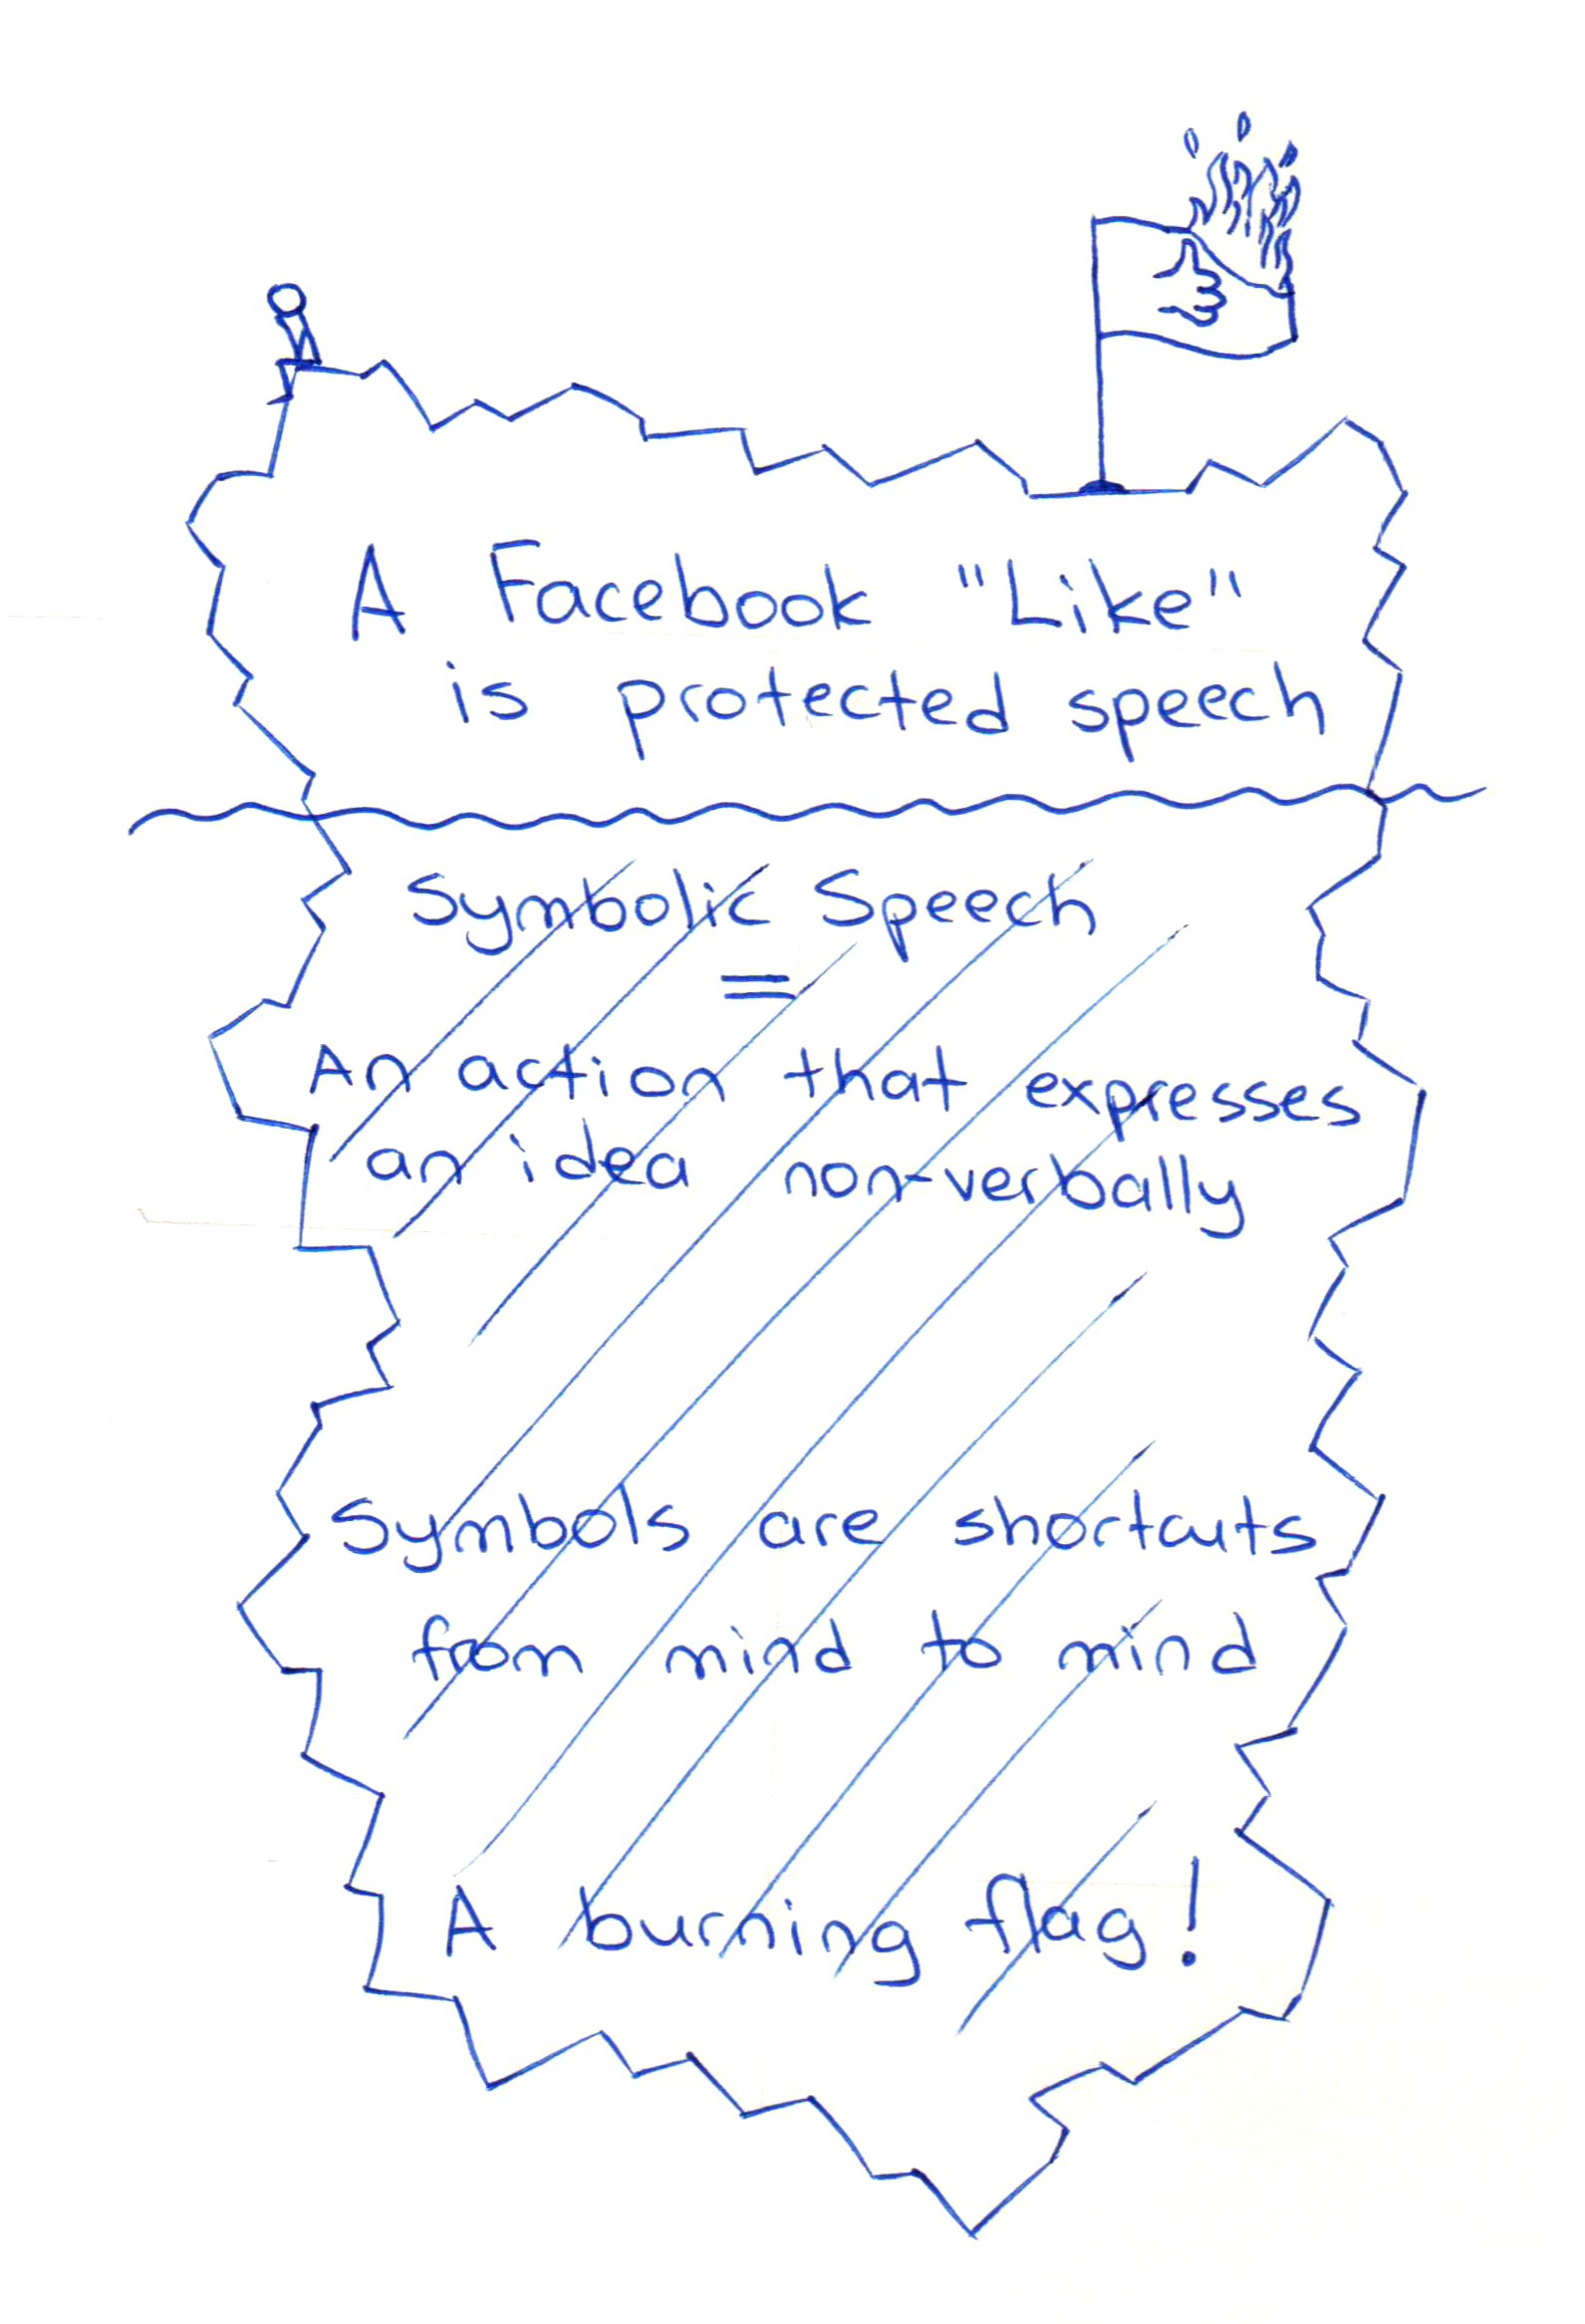 A Facebook "Like"
is protected speech
Symbolic Speech
=
An action that expresses
an idea non-verbally
Symbols are shortcuts
from mind to mind
A burning flag!